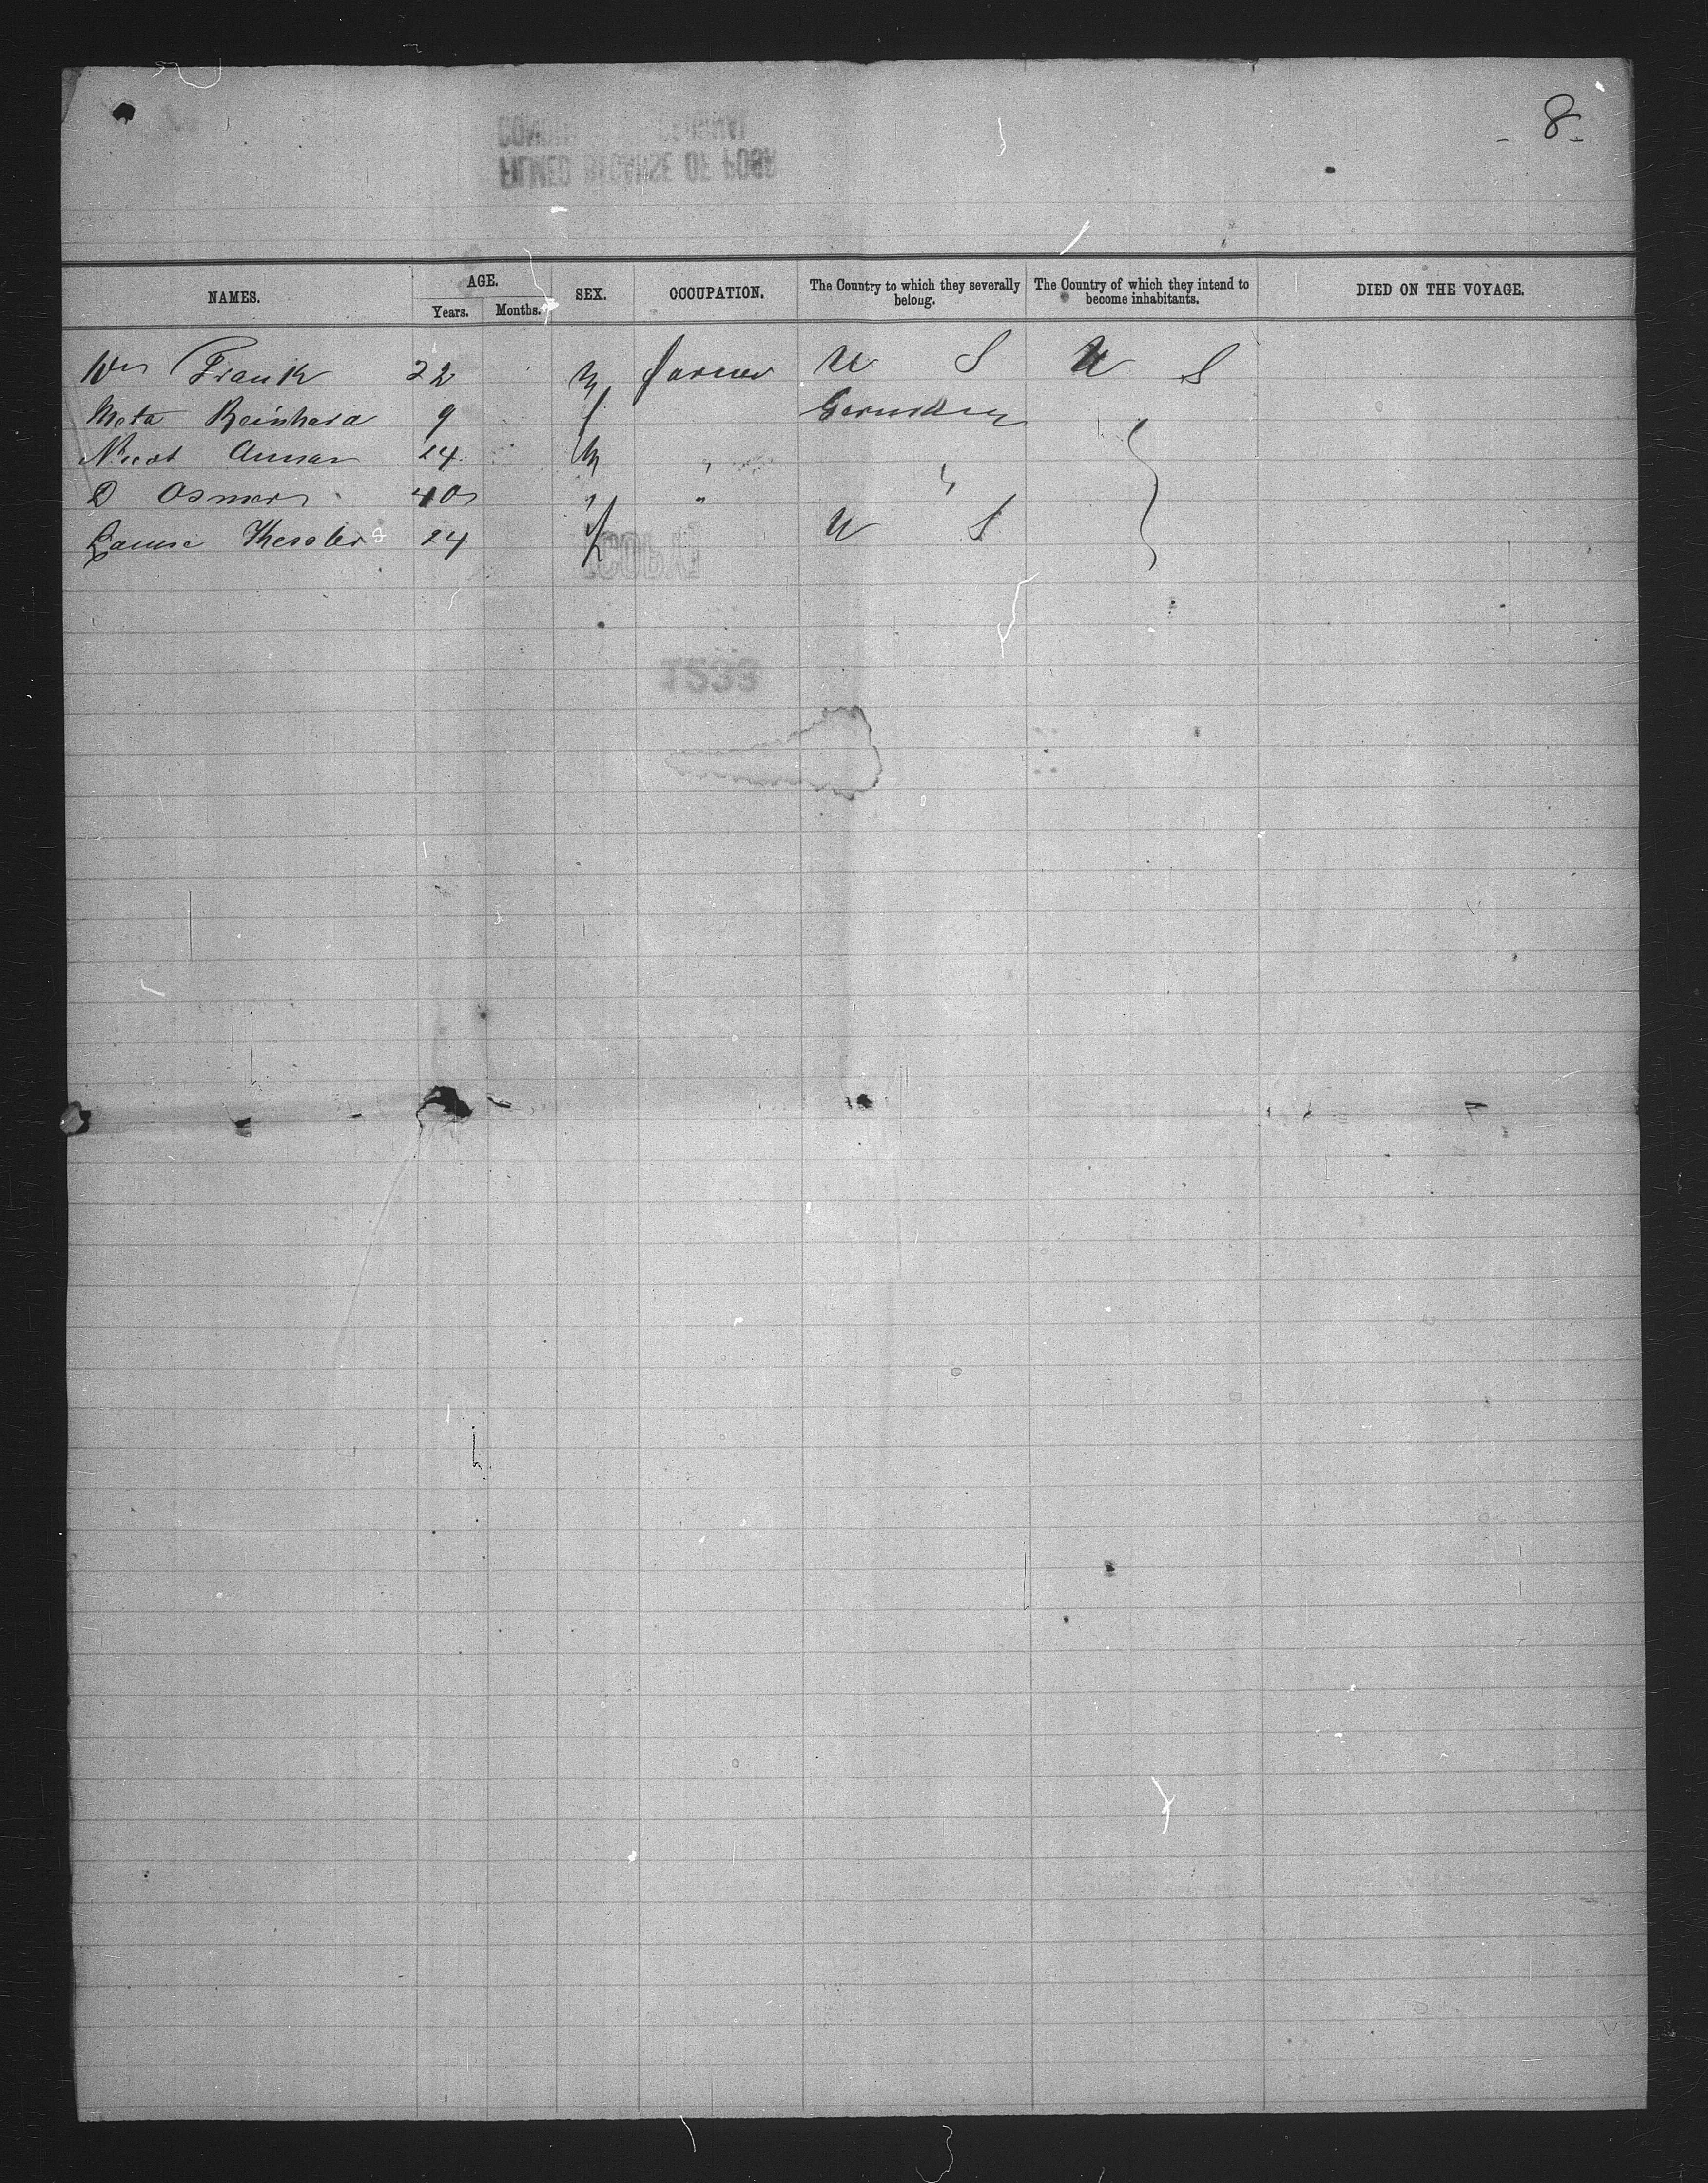 - 8 -
NAMES. AGE. SEX. OCCUPATION. The Country to which they severally belong. The Country of which they intend to become inhabitants. DIED ON THE VOYAGE.
Years. Months.
Wm Frank 22 M farmer U S U S
Meta Reinhard 9 f Germany
24 M " "
D Osmer 40 " "
Kessler 24 f U S
COPY
1533